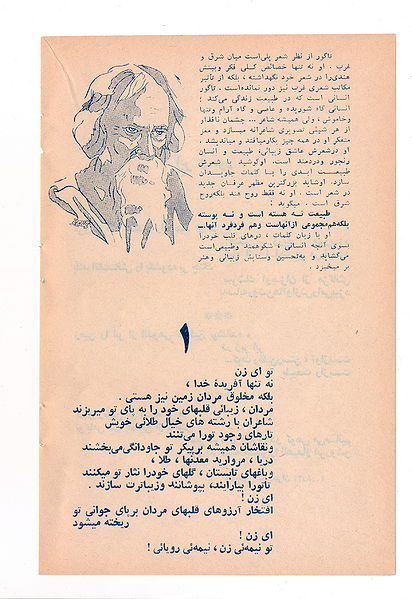 تاگور از نظر شعر پلی‌است میان شرق و
غرب . او نه تنها خصائص کلی فکر وبینش
هندی‌را در شعر خود نگهداشته ، بلکه از تأثیر
مکاتب شعری غرب نیز دور نمانده‌است . تاگور
انسانی است که در طبیعت زندگی می‌کند ؛
انسانی گاه شوریده و عاصی و گاه آرام وتنها
وخاموش ، ولی همیشه شاعر ... چشمان نافذ او
از هر شیئی تصویری شاعرانه میسازد و مغز
متفکر او در همه چیز بکارمیافتد و میاندیشد .
او درشعرش عاشق زیبائی، طبیعت و انسان
رنجور ودردمند است. اوکوشید با شعرش
طبیعت ابدی را با کلمات جاویدان
سازد. اوشاید بزرگترین مظهر عرفان جدید
در شعر است . او نه فقط روح هند بلکه‌روح
شرق است . میگوید :
طبیعت نه هسته است و نه پوسته
بلکه‌هم‌مجموعی ازآنهاست وهم فردفرد آنها...
او با زبان کلمات ، درهای قلب خودرا
بسوی آنچه انسانی ، شکوهمند وطبیعی‌است
می‌گشاید و به‌تحسین وستایش زیبائی وهنر
بر میخیزد .
۱
تو ای زن
نه تنها آفریدهٔ خدا ،
بلکه مخلوق مردان زمین نیز هستی .
مردان ، زیبائی قلبهای خود را به پای تو میریزند
شاعران با رشته های خیال طلائی خویش
تارهای وجود تورا می‌تنند
ونقاشان همیشه برپیکر تو جاودانگی‌می‌بخشند
دریا ، مروارید معدنها ، طلا ،
وباغهای تابستان ، گلهای خودرا نثار تو میکنند
تاتورا بیارایند، بپوشانند وزیباترت سازند .
ای زن !
افتخار آرزوهای قلبهای مردان برپای جوانی تو
ریخته میشود
ای زن !
تو نیمه‌ئی زن ، نیمه‌ئی رویائی !